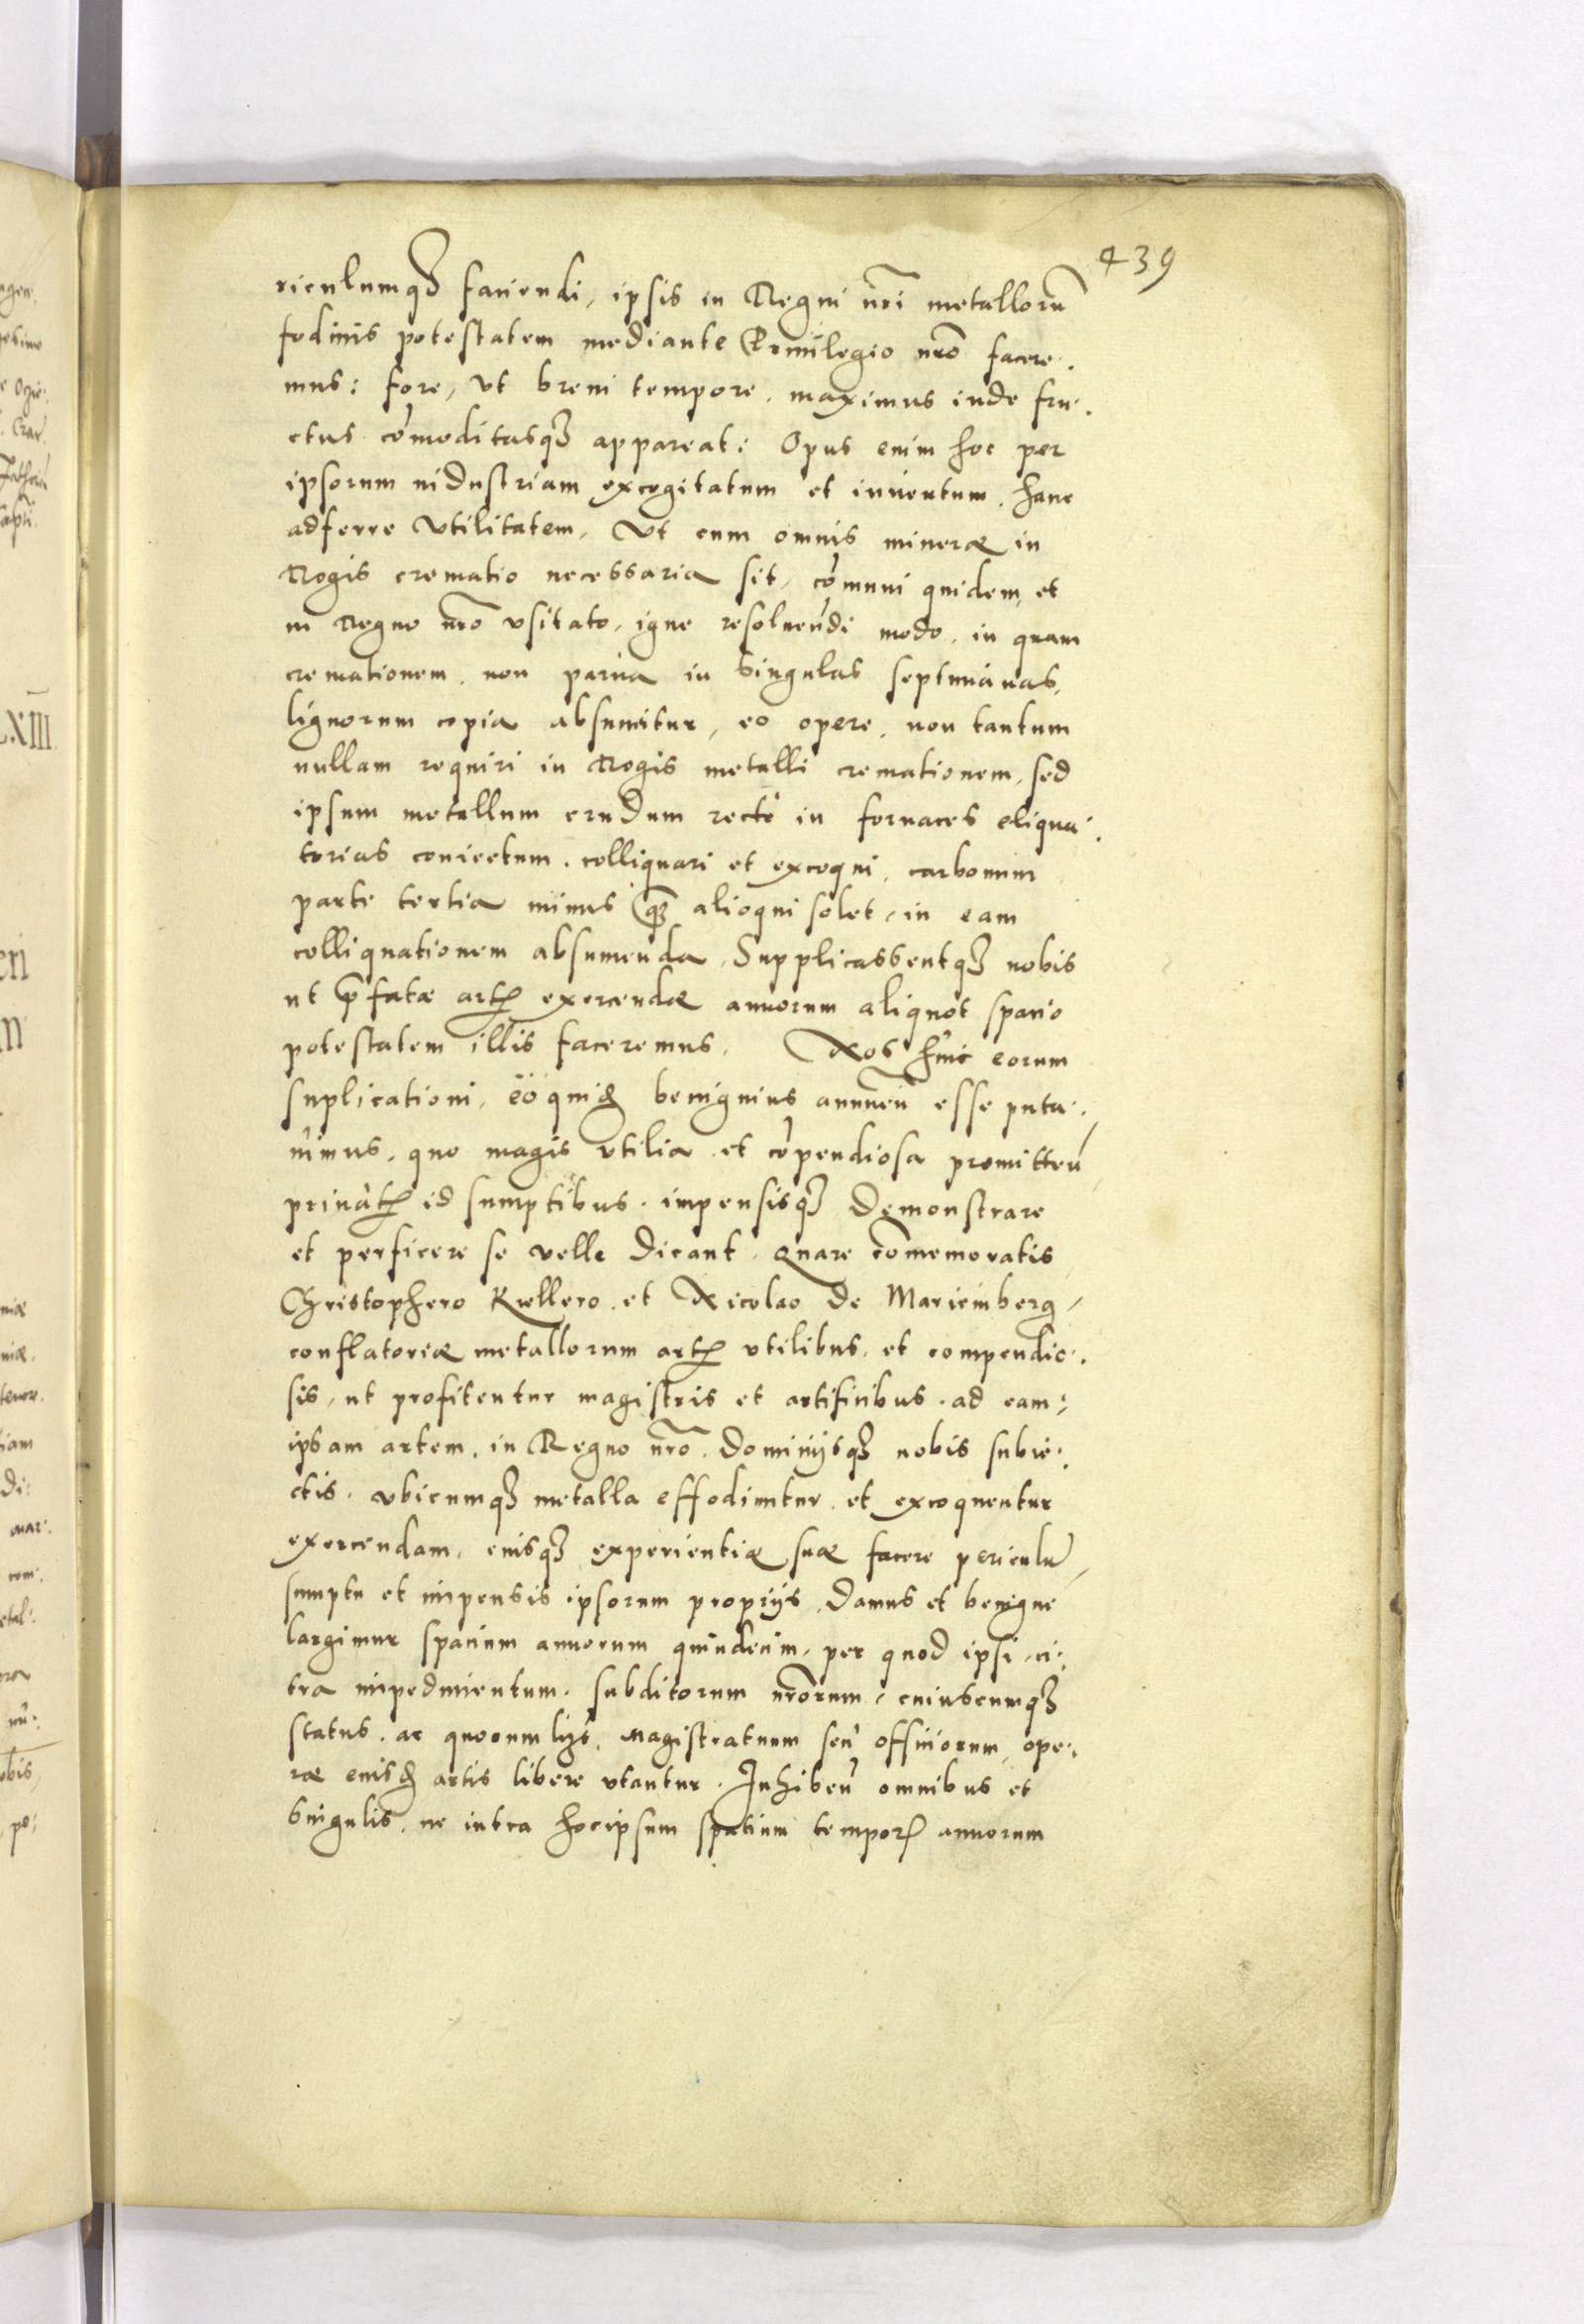 439
riculumqꝫ faciendi, ipsis in Regni nr̃i metallorũ
fodinis potestatem mediante Priuilegio nrõ facere.
mus: fore, vt breui tempore, maximus inde fru.
ctus comoditasqꝫ appareat: Opus enim hoc per
ipsorum industriam excogitatum et inuentum, hanc
adferre vtilitatem, Vt cum omnis mineræ in
Rogis crematio necessaria sit, comuni quidem, et
in Regno nrõ vsitato, igne resoluendi modo, in quam
cremationem, non parua in singulas septimanas,
lignorum copia absumitur, eo opere, non tantum
nullam requiri in Rogis metalli cremationem, sed
ipsum metallum crudum recte in fornaces eliqua.
torias coniectum, colliquari et excoqui, carbonum
parte tertia minus qꝫ alioqui solet, in eam
colliquationem absumenda, Supplicassentqꝫ nobis
ut p̃fatæ artꝭ exercendæ annorum aliquot spacio
potestatem illis faceremus. Nos huic eorum
suplicationi, eo quidẽ benignius annuen̄ esse puta.
uimus, quo magis vtilia et cõpendiosa promitteñ
priuatꝭ id sumptibus, impensisqꝫ demonstrare
et perficere se velle dicant, Quare cõmemoratis
Christophero Kuellero, et Nicolao de Mariemberg,
conflatoriæ metallorum artꝭ vtilibus, et compendio.
sis, ut profitentur magistris et artificibus, ad eam:
ipsam artem, in Regno nrõ, Dominijsqꝫ nobis subie.
ctis, vbicumqꝫ metalla effodiuntur, et excoquentur
exercendam, eiusqꝫ experientiæ suæ facere periculũ,
sumptu et impensis ipsorum proprijs, damus et benigne
largimur spacium annorum quindecim, per quod ipsi, ci.
tra impedimentum, subditorum nrõrum, cuiuscumqꝫ
status, ac quorumlibꝫ, Magistratuum seu officiorum, ope.
ræ eiusdẽ artis libere vtantur. Inhibeñ omnibus et
singulis, ne intra hocipsum spatium temporꝭ annorum